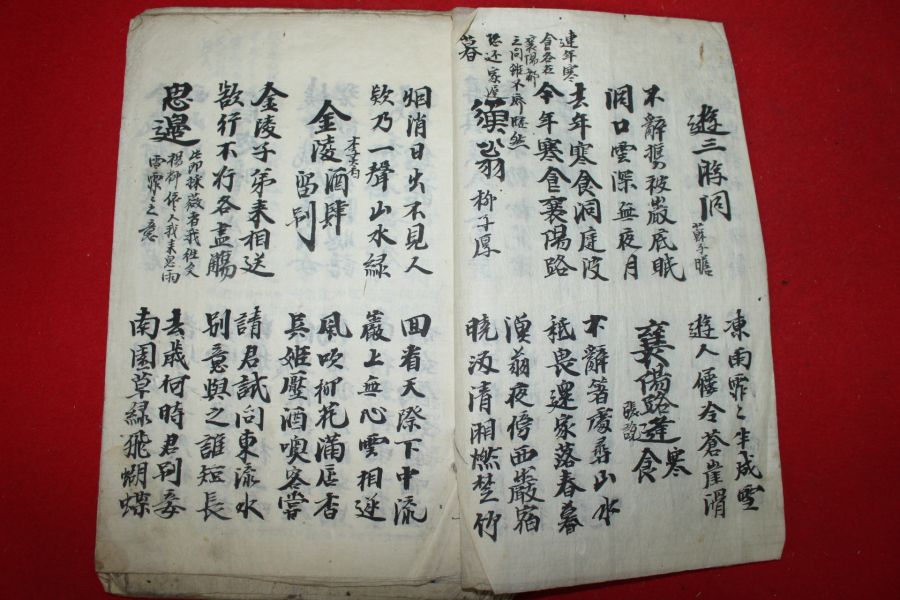 遊三游洞 蘇子瞻
凍雨霏〻半成雪
遊人屨冷蒼崖滑
不辭携被巖底眠
洞口雲深無夜月
襄陽路逢寒食 張說
去年寒食洞庭波
今年寒食襄陽路
不辭著處尋山水
秪畏還家落春暮
連年寒
食各在
襄陽
之間雖不
恐還家遲
暮
漁翁 柳子厚
漁翁夜傍西巖宿
曉汲清湘燃楚竹
烟消日出不見人
欸乃一聲山水綠
回看天際下中流
巖上無心雲相逐
金陵酒肆留別 李太白
風吹柳花滿店香
吳姬壓酒喚客嘗
金陵子弟來相送
欲行不行各盡觴
請君試問東流水
別意與之誰短長
思邊
此即採薇者我徂矣
楊柳依〻今我來思雨
雪霏〻之意
去歲何時君別妾
南園草綠飛蝴蝶